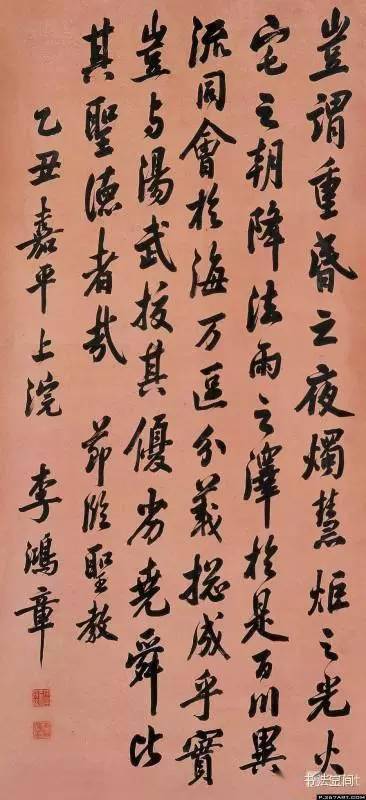 豈謂重昬之夜燭慧炬之光火
宅之朝降法雨之澤於是百川異
流同會於海万區分義揔成乎實
豈与湯武挍其優劣堯舜比
其聖德者哉 節臨聖教
乙丑嘉平上浣 李鴻章
书法空间t